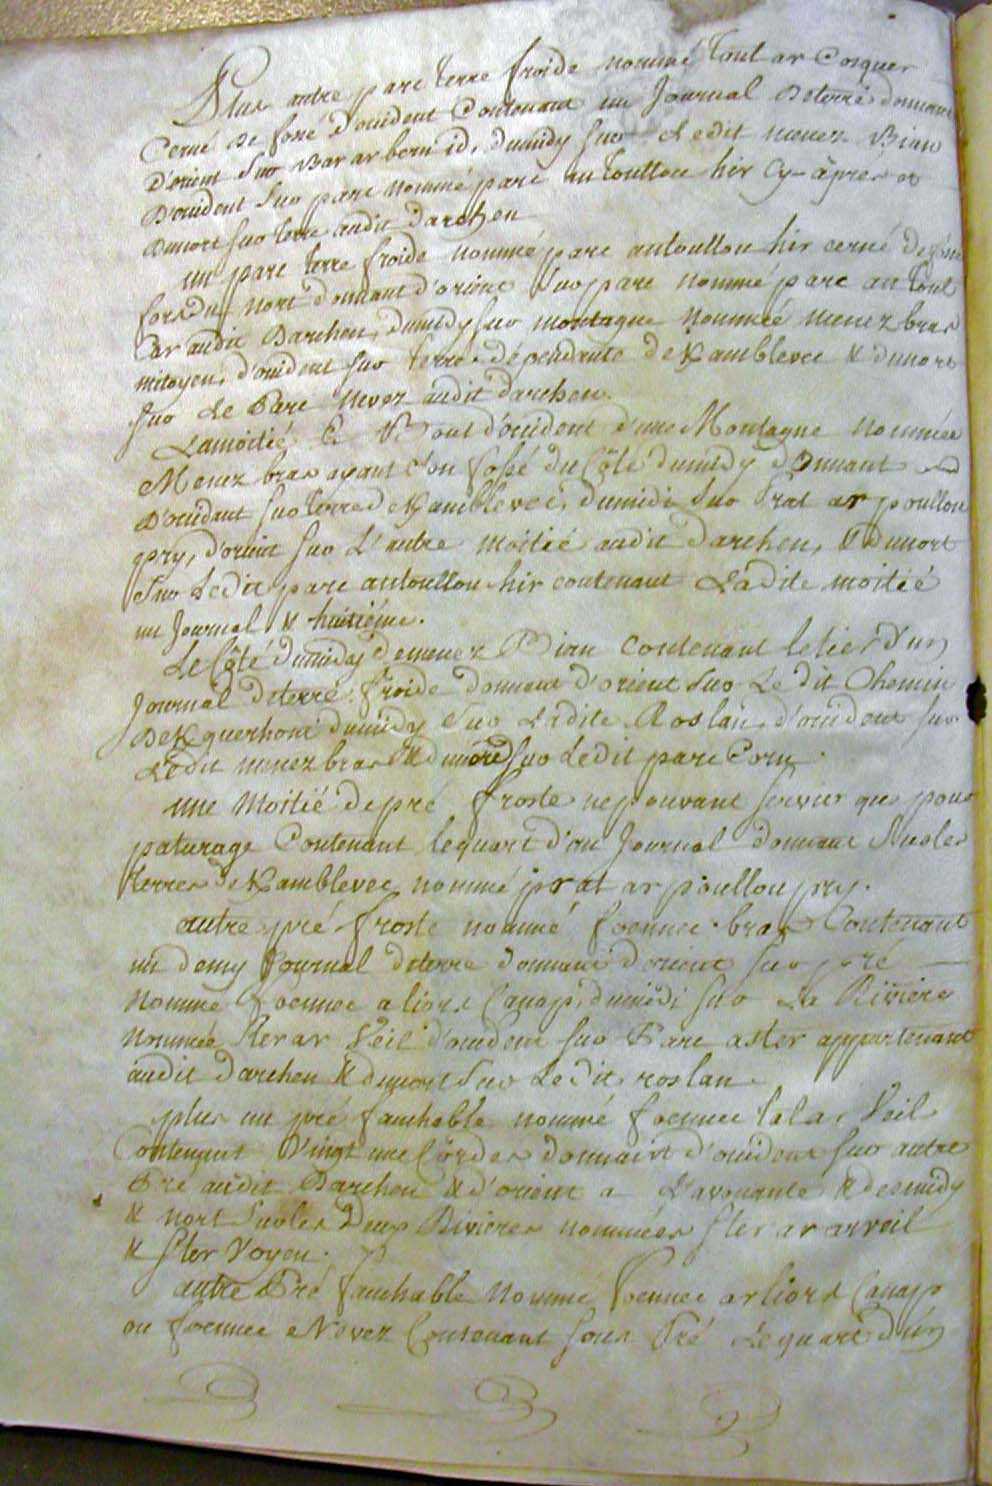 Plus autre parc terre froide nommé Toul ar Cosquer
Cerné de fossé d'ouident Contenant un Journal de terre donnant
d'orient suo Bar ar bern id, dumidy suo Ledit menez Bian
D'ouident suo parc nommé parc an Toullou hir Cy-àprés et
dunort suo terre audit darchen
un parc terre froide nommé parc antoullou hir cerné de fossé
fors du nort donnant d'orient suo parc nommé parc an Toul
Car audit Darchen, dumidy suo montagne nommée menez bras
mitoyen, d'ouident suo terre dépendante de Kamblevec & dunort
suo Le Parc Nevez audit darchen.
Lamoitié & Bout d'ouident d'une Montagne nommée
Menez bras ayant son fossé du Côté dumidy Donnant
d'ouidant suo terre de Kamblevec, dumidi suo Prat ar poullou
pry, d'orient suo L'autre moitié audit darchen, & dunort
suo Ledit parc antoullou hir contenant Ladite moitié
un Journal & huitiéme.
Le Côté dumidy demenez Bian Contenant letier d'un
Journal deterre froide donnant d'orient suo Le dit Chemin
De Kquerhoné dumidy suo Ladite Roslan, d'ouident suo
Ledit menez bras & dunord suo Ledit parc Corn
une Moitié depré froste nepouvant servir que pour
paturage Contenant lequart d'un Journal donnant Suoles
terres de Kamblevec nommé prat ar poullou pry.
autre pré froste nommé foennec bras Contenant
un demy Journal deterre donnant d'orient suo pré
Nommé foennec a liors Canap, dumidi suo La Riviere
Nommée Ster ar Veil d'ouident suo Parc aster appartenant
audit darchen & dunort suo Ledit roslan.
plus un pré fauchable nommé foennec tal ar Veil
Contenant Vingt une Cordes donnant d'ouident suo autre
Pré audit Darchen & d'orient a L'avenante & desmidy
& Nort Suoles Deux Rivieres nommées ster ar arveil
& ster Voyen.
autre Pré fauchable Nommé foennec ar liors Canap
ou foennec eNevez Contenant sous Pré Lequart d'un